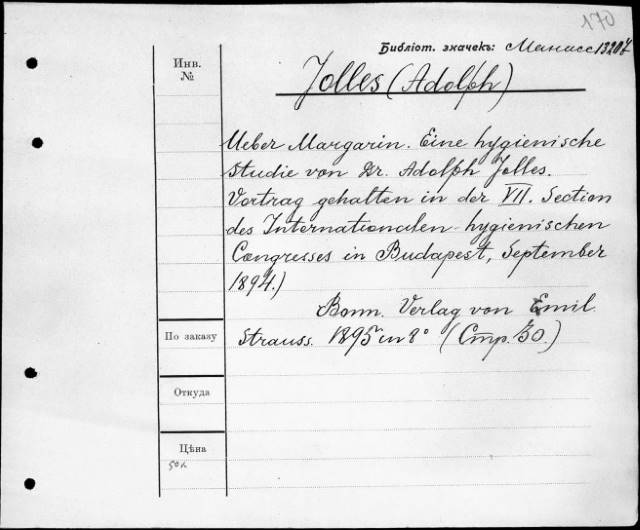 170
Библіот. значекъ: Манасс 13204
Инв.
№
Jolles (Adolph)
Ueber Margarin. Eine hygienische
Studie von Dr. Adolph Jolles.
Vortrag gehalten in der VII. Section
des Internationalen hygienischen
Congresses in Budapest, September
1894.)
Bonn. Verlag von Emil
Strauss. 1895 in 8° (Стр. 30.)
По заказу
Откуда
Цѣна
50к